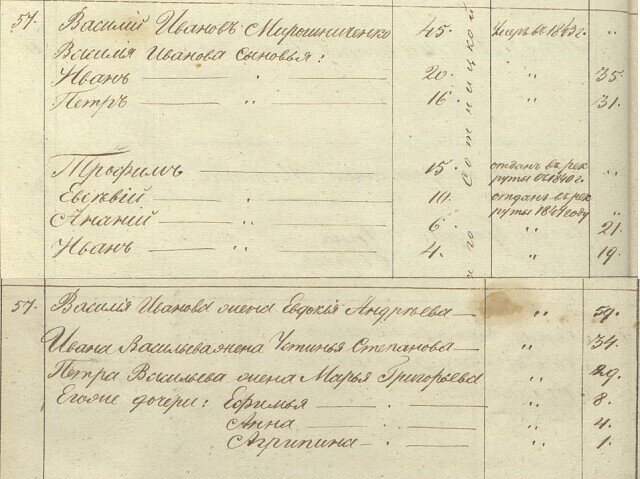 57. Василій Ивановъ Мирошниченко 45. умръ въ 1843 г. "
Василія Иванова сыновья:
Иванъ — " — 20. " 35.
Петръ — " — 16. " 31.
Трофимъ — " — 15. отданъ въ рек
руты въ 1840 г. "
Евсѣвій — " — 10. отданъ въ рек
руты 1847 году "
Ананій — " — 6. " 21.
Иванъ — " — 4. " 19.
57. Василія Иванова жена Евдокія Андрѣева — " 59.
Ивана Васильева жена Устинья Степанова — " 34.
Петра Васильева жена Марья Григорьева " 29.
Егоже дочери: Ефимья — " 8.
Анна — " 4.
Агрипина — " 1.